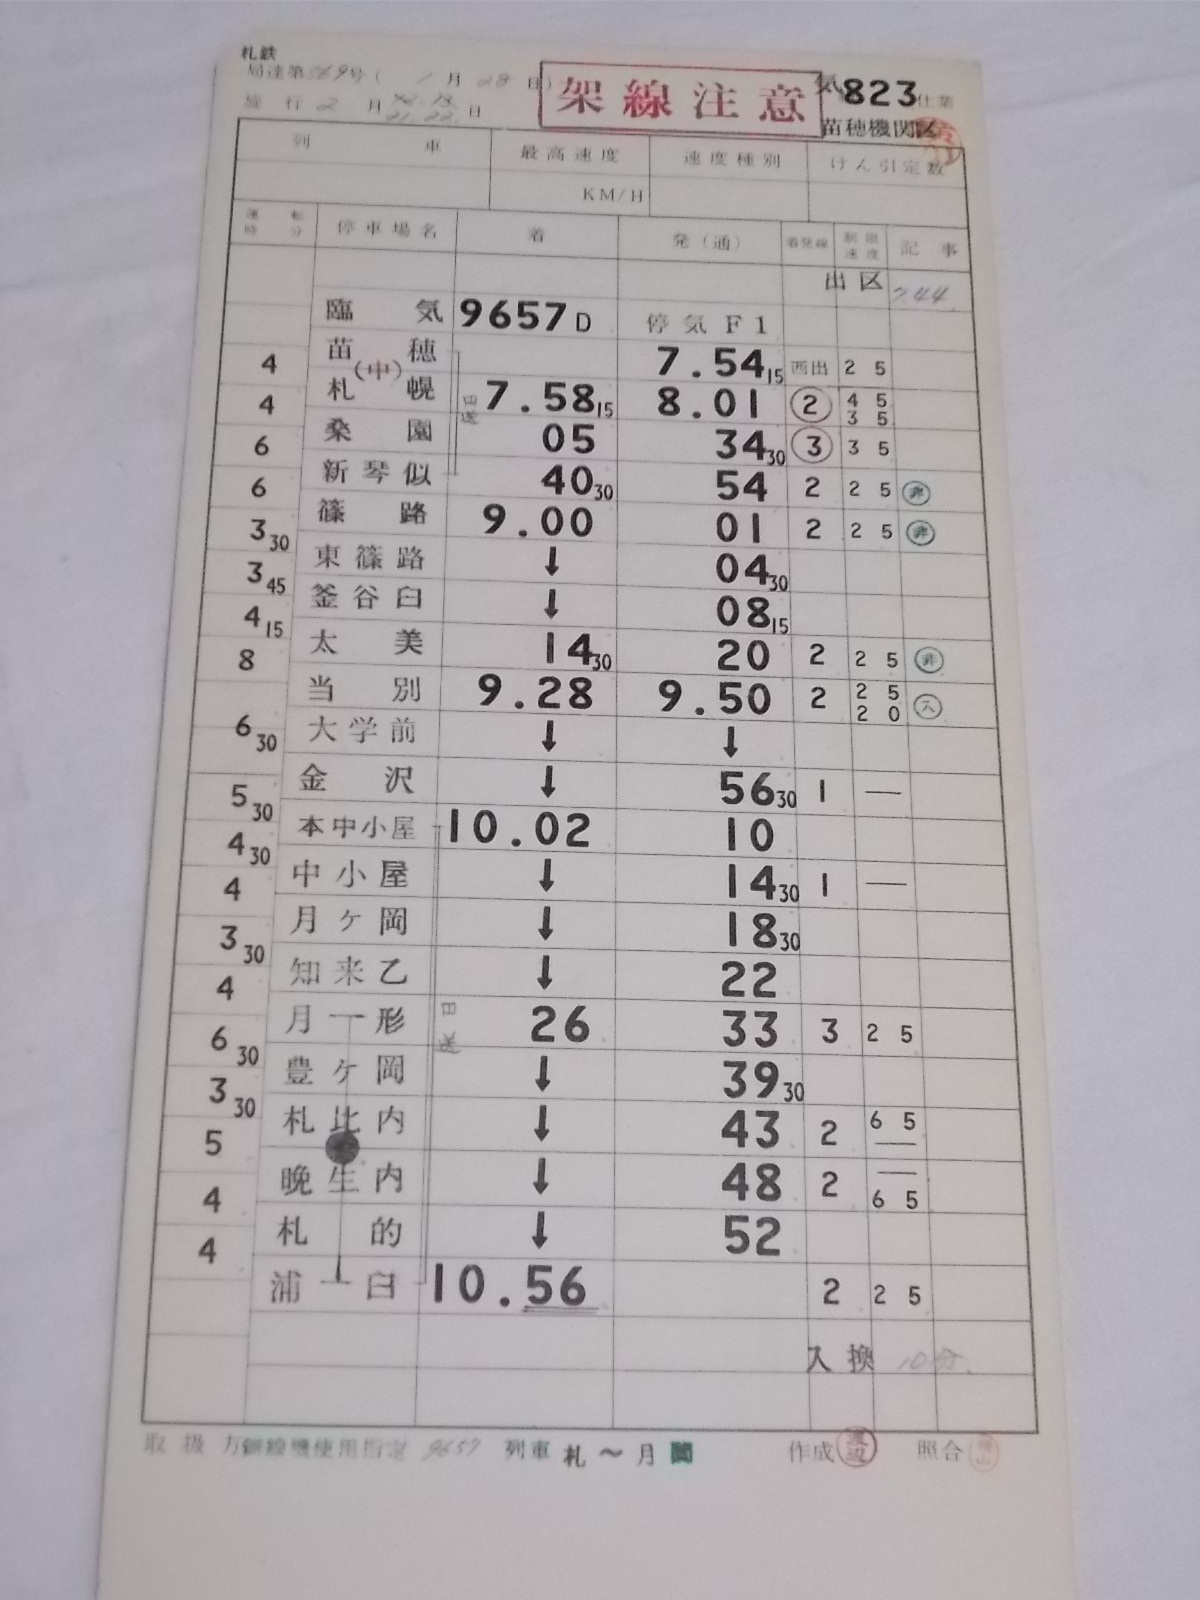 札鉄
局達第569号( 1月28日)
架線注意
気823仕業
施行2月 21.22.日
苗穂機関区
列車 最高速度 速度種別 けん引定数
KM/H
運転時分 停車場名 着 発(通) 着発線 制限速度 記事
出区 7.44
臨気 9657D 停気F1
4 苗穂 7.5415 西出 25
(中)
4 札幌 7.5815 8.01 ② 45 35
6 桑園 05 3430 ③ 35
6 新琴似 4030 54 2 25 非
330 篠路 9.00 01 2 25 非
345 東篠路 ↓ 0430
415 釜谷臼 ↓ 0815
8 太美 1430 20 2 25 非
当別 9.28 9.50 2 25 20 入
630 大学前 ↓ ↓
530 金沢 ↓ 5630 1 —
430 本中小屋 10.02 10
4 中小屋 ↓ 1430 1 —
330 月ヶ岡 ↓ 1830
4 知来乙 ↓ 22
630 月形 26 33 3 25
330 豊ヶ岡 ↓ 3930
5 札比内 ↓ 43 2 65 —
4 晩生内 ↓ 48 2 — 65
4 札的 ↓ 52
浦臼 10.56 2 25
入換 10分.
取扱方 無線機使用指定 9657 列車 札〜月 作成 渡辺 照合